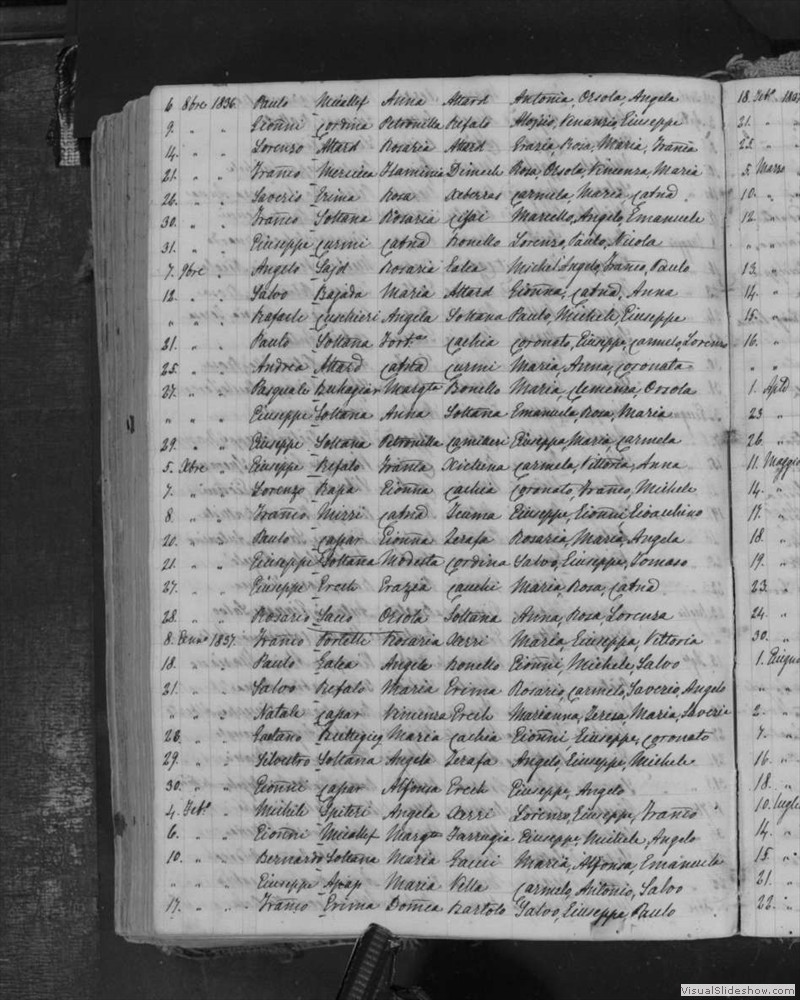 6. 8bre 1836 Paulo Micallef Anna Attard Antonia, Orsola, Angela
9. " " Gionni Cordina Petronilla Refalo Aloisio, Venanzio, Giuseppe
14. " " Lorenzo Attard Rosaria Attard Grazia, Rosa, Maria, Frania
21. " " Franco Mercieca Flaminia Dimech Rosa, Orsola, Vincenza, Maria
26. " " Saverio Grima Rosa Axberras Carmela, Maria, Catna
30. " " Franco Soltana Rosaria Marcello, Angelo, Emanuele
31. " " Giuseppe Curmi Catna Bonello Lorenzo, Paulo, Nicola
7. 9bre " Angelo Sajd Rosaria Galea Michel'Angelo, Franco, Paulo
12. " " Salvo Bajada Maria Attard Gionna, Catna, Anna
" " " Rafaele Cuschieri Angela Soltana Paulo, Michele, Giuseppe
21. " " Paulo Soltana Fort.a Cachia Coronato, Giuseppe, Carmelo, Lorenzo
25. " " Andrea Attard Catna Curmi Maria, Anna, Coronata
27. " " Pasquale Buhagiar Margta Bonello Maria, Clemenza, Orsola
" " " Giuseppe Soltana Anna Soltana Emanuela, Rosa, Maria
29. " " Giuseppe Soltana Petronilla Camilleri Giuseppa, Maria, Carmela
5. Xbre " Giuseppe Refalo Frania Xicluna Carmela, Vittoria, Anna
7. " " Lorenzo Bapa Gionna Cachia Coronato, Franco, Michele
8. " " Franco Mizzi Catna Giuseppe, Gionni, Gioachino
20. " " Paulo Capar Gionna Zerafa Rosaria, Maria, Angela
21. " " Giuseppe Soltana Modesta Cordina Salvo, Giuseppe, Tomaso
27. " " Giuseppe Grech Grazia Cauchi Maria, Rosa, Catna
28. " " Rosario Saco Orsola Soltana Anna, Rosa, Lorenza
8. Genno 1837. Franco Portelli Rosaria Azzi Maria, Giuseppa, Vittoria
18. " " Paulo Galea Angela Bonello Gionni, Michele, Salvo
21. " " Salvo Refalo Maria Grima Rosario, Carmelo, Saverio, Angelo
" " " Natale Capar Vincenza Grech Marianna, Teresa, Maria, Saveria
26. " " Gaetano Buttigieg Maria Cachia Gionni, Giuseppe, Coronato
29. " " Silvestro Soltana Angela Zerafa Angelo, Giuseppe, Michele
30. " " Gionni Capar Alfonsa Grech Giuseppe, Angelo
4. Feb.o " Michele Spiteri Angela Azzi Lorenzo, Giuseppe, Franco
6. " " Gionni Micallef Margta Farrugia Giuseppe, Michele, Angelo
10. " " Bernardo Soltana Maria Gauci Maria, Alfonsa, Emanuela
" " " Giuseppe Apap Maria Vella Carmelo, Antonio, Salvo
17. " " Franco Grima Domca Bartolo Salvo, Giuseppa, Paulo
18. Feb.o 1837
21. "
25. "
5. Marzo
10. "
12. "
" "
13. "
14. "
15. "
16. "
" "
1. Aple
23 "
26. "
11. Maggio
14. "
17. "
18. "
19. "
23. "
24. "
30. "
1. Giugno
" "
2. "
7. "
16. "
18. "
10. Luglio
14. "
15. "
21. "
22. "
VisualSlideshow.com